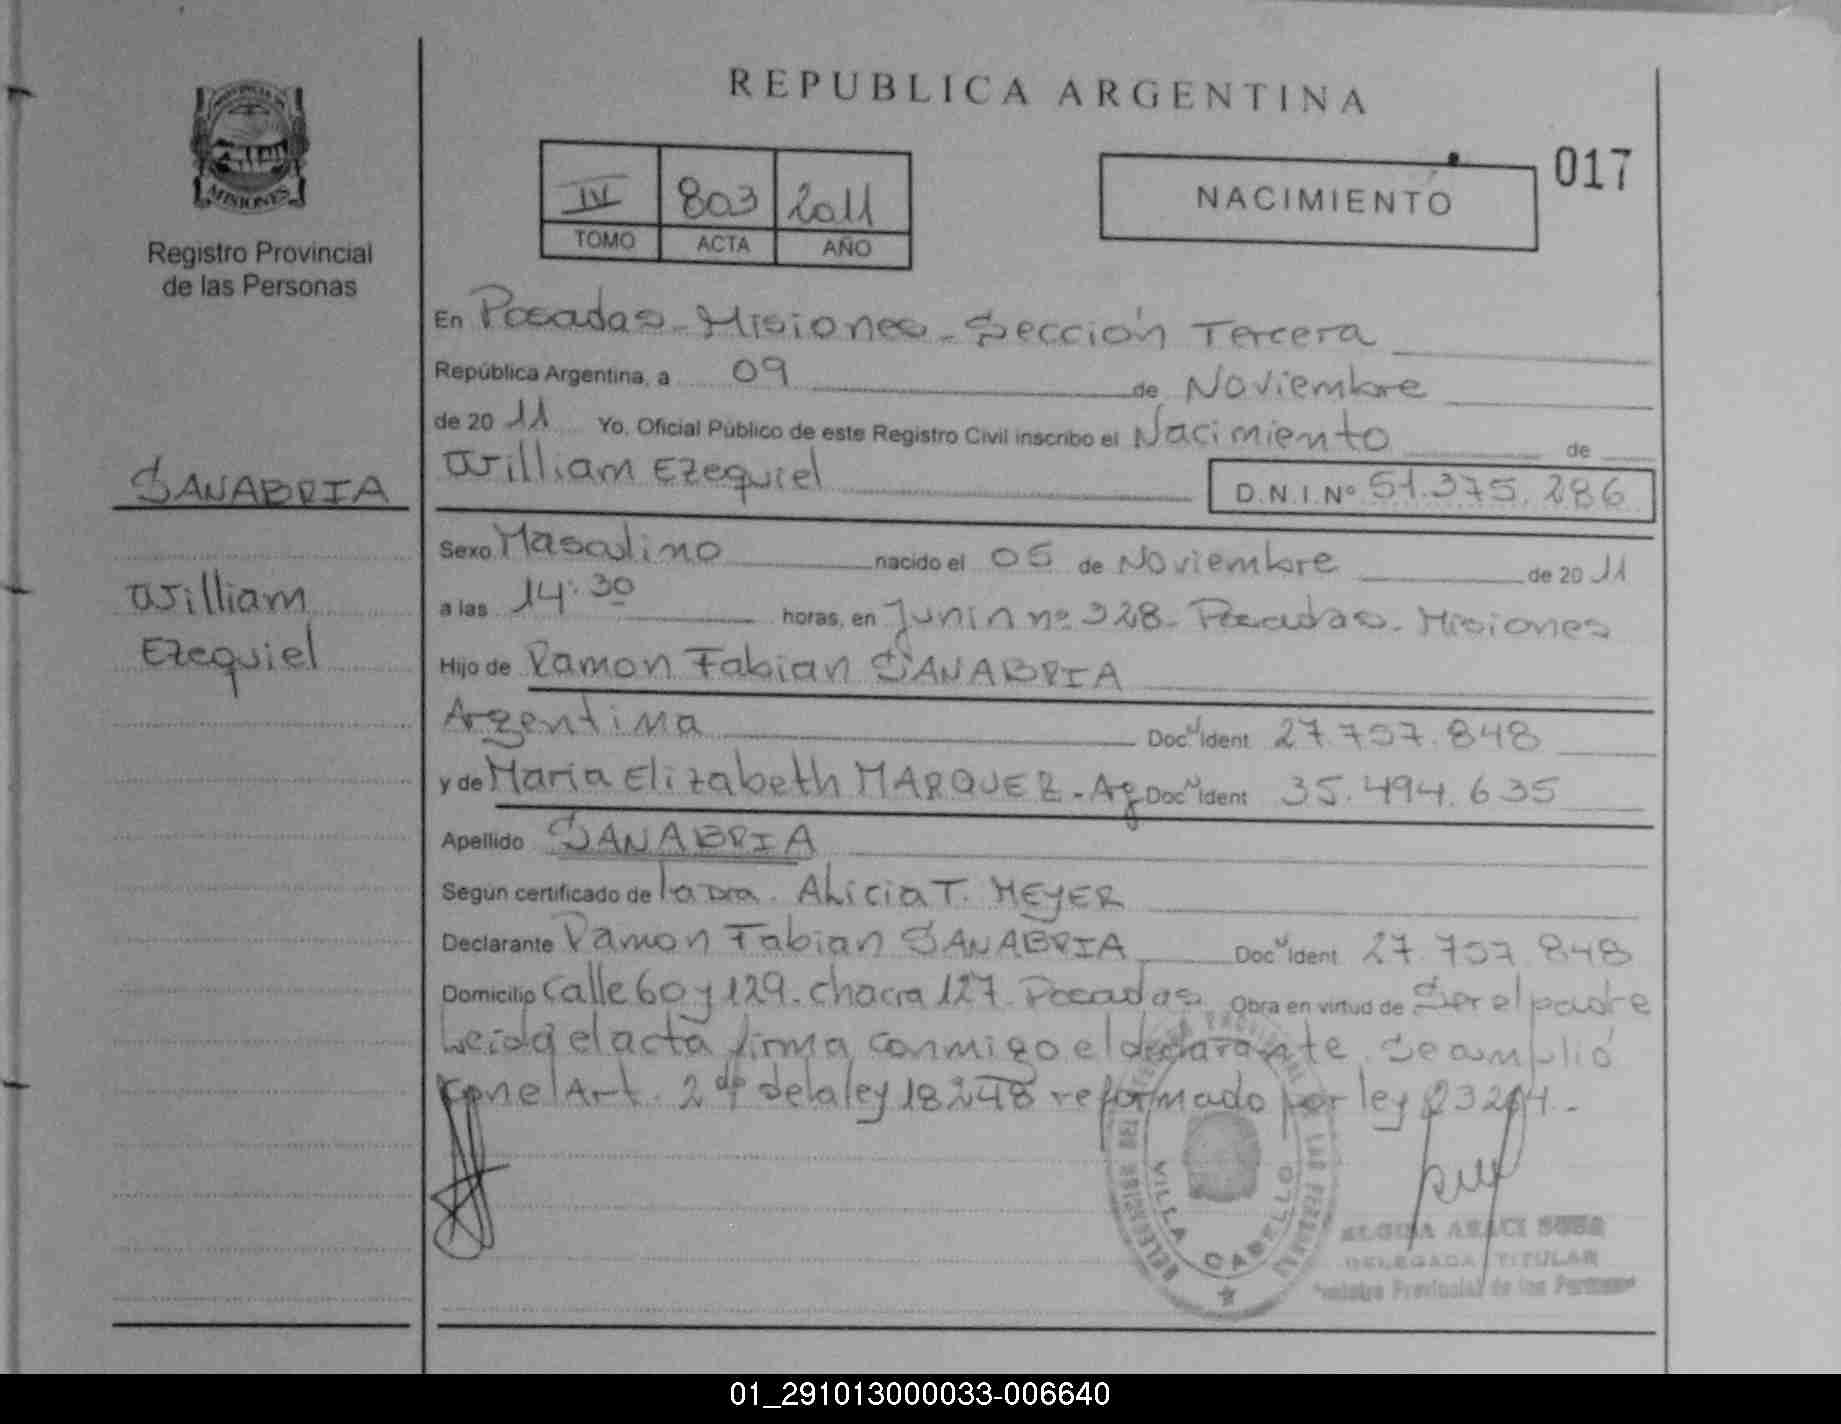 REPUBLICA ARGENTINA
MISIONES
Registro Provincial
de las Personas
IV 803 2011
TOMO ACTA AÑO
NACIMIENTO
017
En Posadas - Misiones - Sección Tercera
República Argentina, a 09 de Noviembre
de 20 11 Yo, Oficial Público de este Registro Civil inscribo el Nacimiento de
William Ezequiel D.N.I. Nº 51.375.286
SANABRIA
William
Ezequiel
Sexo Masculino nacido el 05 de Noviembre de 20 11
a las 14:30 horas, en Junin nº 328 - Posadas - Misiones
Hijo de Ramon Fabian SANABRIA
Argentina Doc. Ident 27.757.848
y de Maria Elizabeth MARQUEZ - Ag Doc. Ident 35.494.635
Apellido SANABRIA
Según certificado de la Dra. Alicia T. MEYER
Declarante Ramon Fabian SANABRIA Doc. Ident 27.757.848
Domicilio Calle 60 y 129 - chacra 127 - Posadas Obra en virtud de Ser el padre
Leida el acta firma conmigo el declarante. Se cumplió
con el Art. 2 de la ley 18248 reformado por ley 23264.-
VILLA CABELLO
DELEGADA TITULAR
Registro Provincial de las Personas
01_291013000033-006640